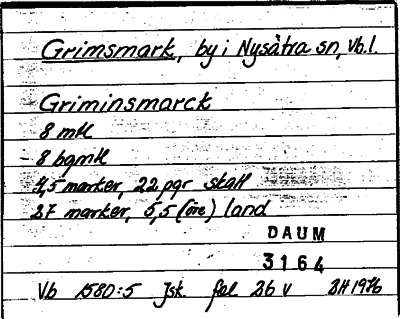 Grimsmark, by i Nysätra sn, Vb.l.
Griminsmarck
8 mtl
8 bgmtl
4,5 marker, 22 pgr skatt
27 marker, 5,5 (öre) land
DAUM
3164
Vb 1580:5 Jsk. fol 26 v BH 1976